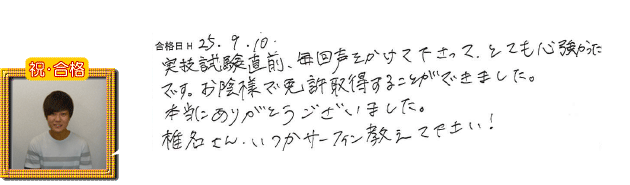 祝・合格
合格日 H 25. 9. 10.
実技試験直前、毎回声をかけて下さって、とても心強かった
です。お陰様で免許取得することができました。
本当にありがとうございました。
椎名さん、いつかサーフィン教えて下さい！